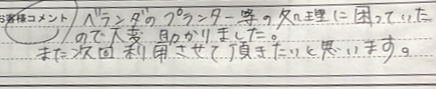 お客様コメント ベランダのプランター等の処理に困っていた
ので大変助かりました。
また次回利用させて頂きたいと思います。